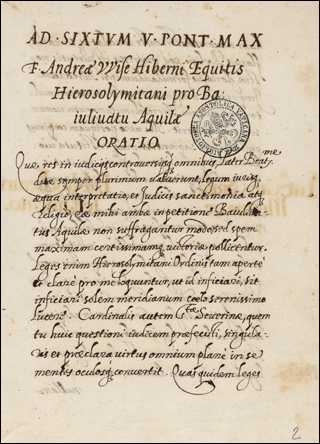 AD · SIXTVM V · PONT · MAX
F. Andreæ Wise Hiberni Equitis
Hierosolymitani pro Ba
iuliuatu Aquilæ
ORATIO
Quæ res in iudicijs controuersijsq; omnibus, Pater Beatme
dissæ semper plurimum ualuerunt, legum iurisq;
æqua interpretatio, et Iudicis sanctimonia atq;
Religio, eæ mihi ambæ in petitione Baiuliua
tus Aquilæ non suffragantur modo, sed spem
maximam certissimamq; uictoriæ pollicentur.
Leges enim Hierosolymitani Ordinis tam aperte
et clare pro me loquuntur, ut id inficiari, sit
inficiari solem meridianum coelo serenissimo
lucere. Cardinalis autem Stæ Seuerinæ, quem
tu huic quæstioni iudicem præfecisti, singula-
ris et præclara uirtus omnium plane in se
mentes oculosq; conuertit. Quas quidem leges
2